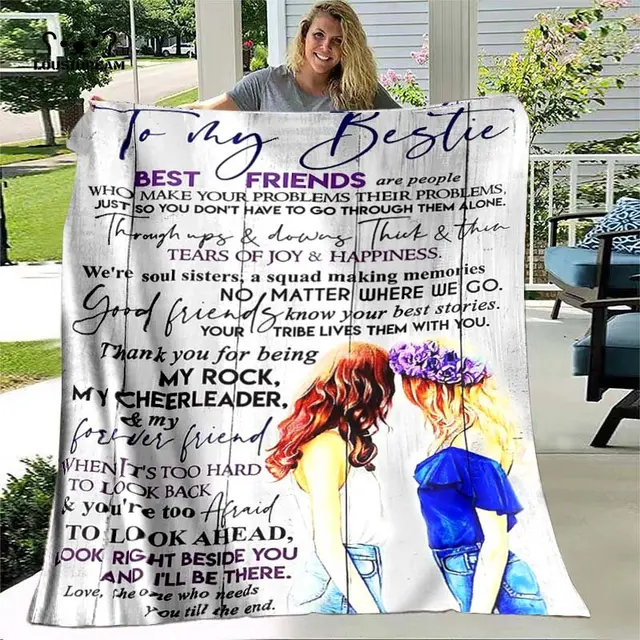 LOUSIDREAM
To my Bestie
BEST FRIENDS are people
WHO MAKE YOUR PROBLEMS THEIR PROBLEMS,
JUST SO YOU DON'T HAVE TO GO THROUGH THEM ALONE.
Through ups & downs Thick & thin
TEARS OF JOY & HAPPINESS.
We're soul sisters, a squad making memories
NO MATTER WHERE WE GO.
Good friends know your best stories.
YOUR TRIBE LIVES THEM WITH YOU.
Thank you for being
MY ROCK,
MY CHEERLEADER,
& my
forever friend
WHEN IT'S TOO HARD
TO LOOK BACK
& you're too Afraid
TO LOOK AHEAD,
LOOK RIGHT BESIDE YOU
AND I'LL BE THERE.
Love, the one who needs
you till the end.